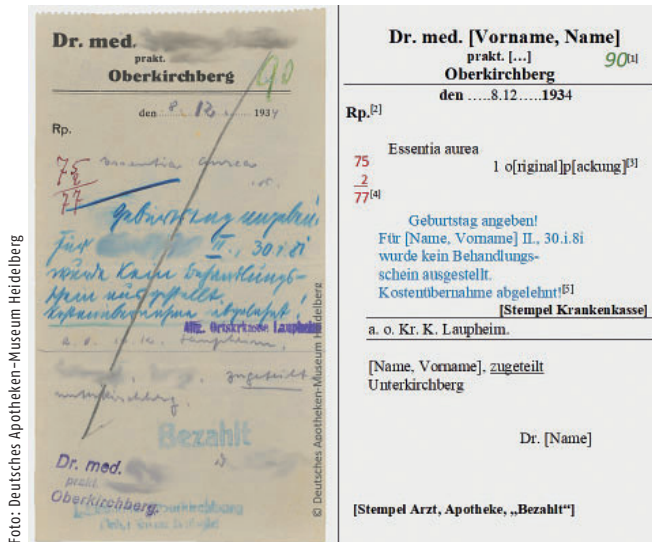 Dr. med.
prakt.
Oberkirchberg
90
den 8. 12. 1934
Rp.
75
2
77
Essentia aurea
Geburtstag angeben!
Für II., 30.i.8i
wurde kein Behandlungs-
schein ausgestellt.
Kostenübernahme abgelehnt!
Allg. Ortskrkasse Laupheim
a. o. Kr. K. Laupheim.
zugeteilt
Unterkirchberg.
Bezahlt
Dr. med.
prakt.
Oberkirchberg.
© Deutsches Apotheken-Museum Heidelberg
Foto: Deutsches Apotheken-Museum Heidelberg
Dr. med. [Vorname, Name]
prakt. [...]
Oberkirchberg
90[1]
den .....8.12 .....1934
Rp.[2]
Essentia aurea
1 o[riginal]p[ackung][3]
75
2
77[4]
Geburtstag angeben!
Für [Name, Vorname] II., 30.i.8i
wurde kein Behandlungs-
schein ausgestellt.
Kostenübernahme abgelehnt![5]
[Stempel Krankenkasse]
a. o. Kr. K. Laupheim.
[Name, Vorname], zugeteilt
Unterkirchberg
Dr. [Name]
[Stempel Arzt, Apotheke, „Bezahlt“]